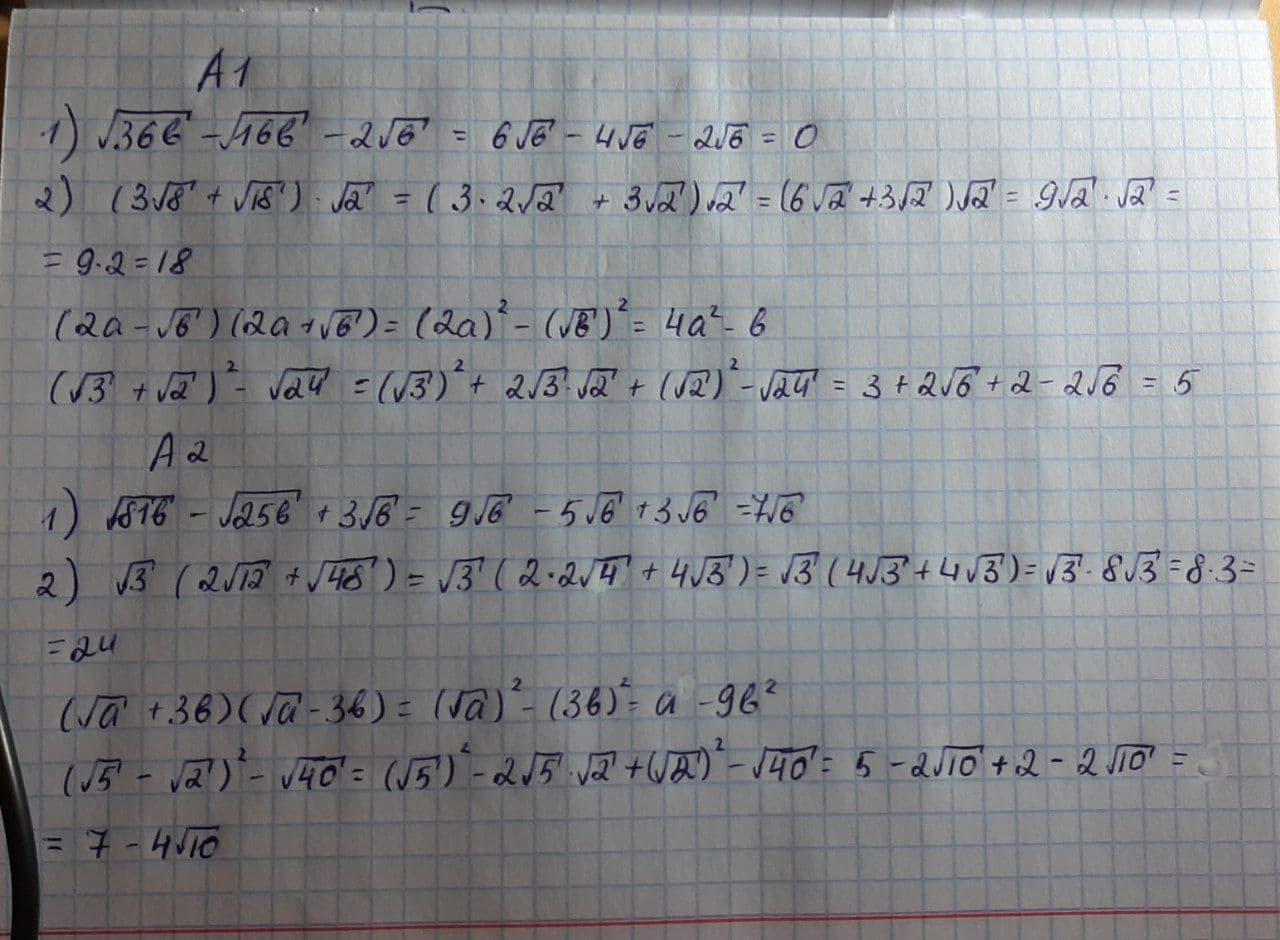 А1
1) √36в - √16в - 2√в = 6√в - 4√в - 2√в = 0
2) (3√8 + √18) · √2 = (3 · 2√2 + 3√2)√2 = (6√2 + 3√2)√2 = 9√2 · √2 =
= 9·2 = 18
(2a - √в)(2a + √в) = (2a)² - (√в)² = 4a² - в
(√3 + √2)² - √24 = (√3)² + 2√3·√2 + (√2)² - √24 = 3 + 2√6 + 2 - 2√6 = 5
А2
1) √81в - √25в + 3√в = 9√в - 5√в + 3√в = 7√в
2) √3 (2√12 + √48) = √3 (2·2√4 + 4√3) = √3 (4√3 + 4√3) = √3 · 8√3 = 8·3 =
= 24
(√a + 3в)(√a - 3в) = (√a)² - (3в)² = a - 9в²
(√5 - √2)² - √40 = (√5)² - 2√5·√2 + (√2)² - √40 = 5 - 2√10 + 2 - 2√10 =
= 7 - 4√10